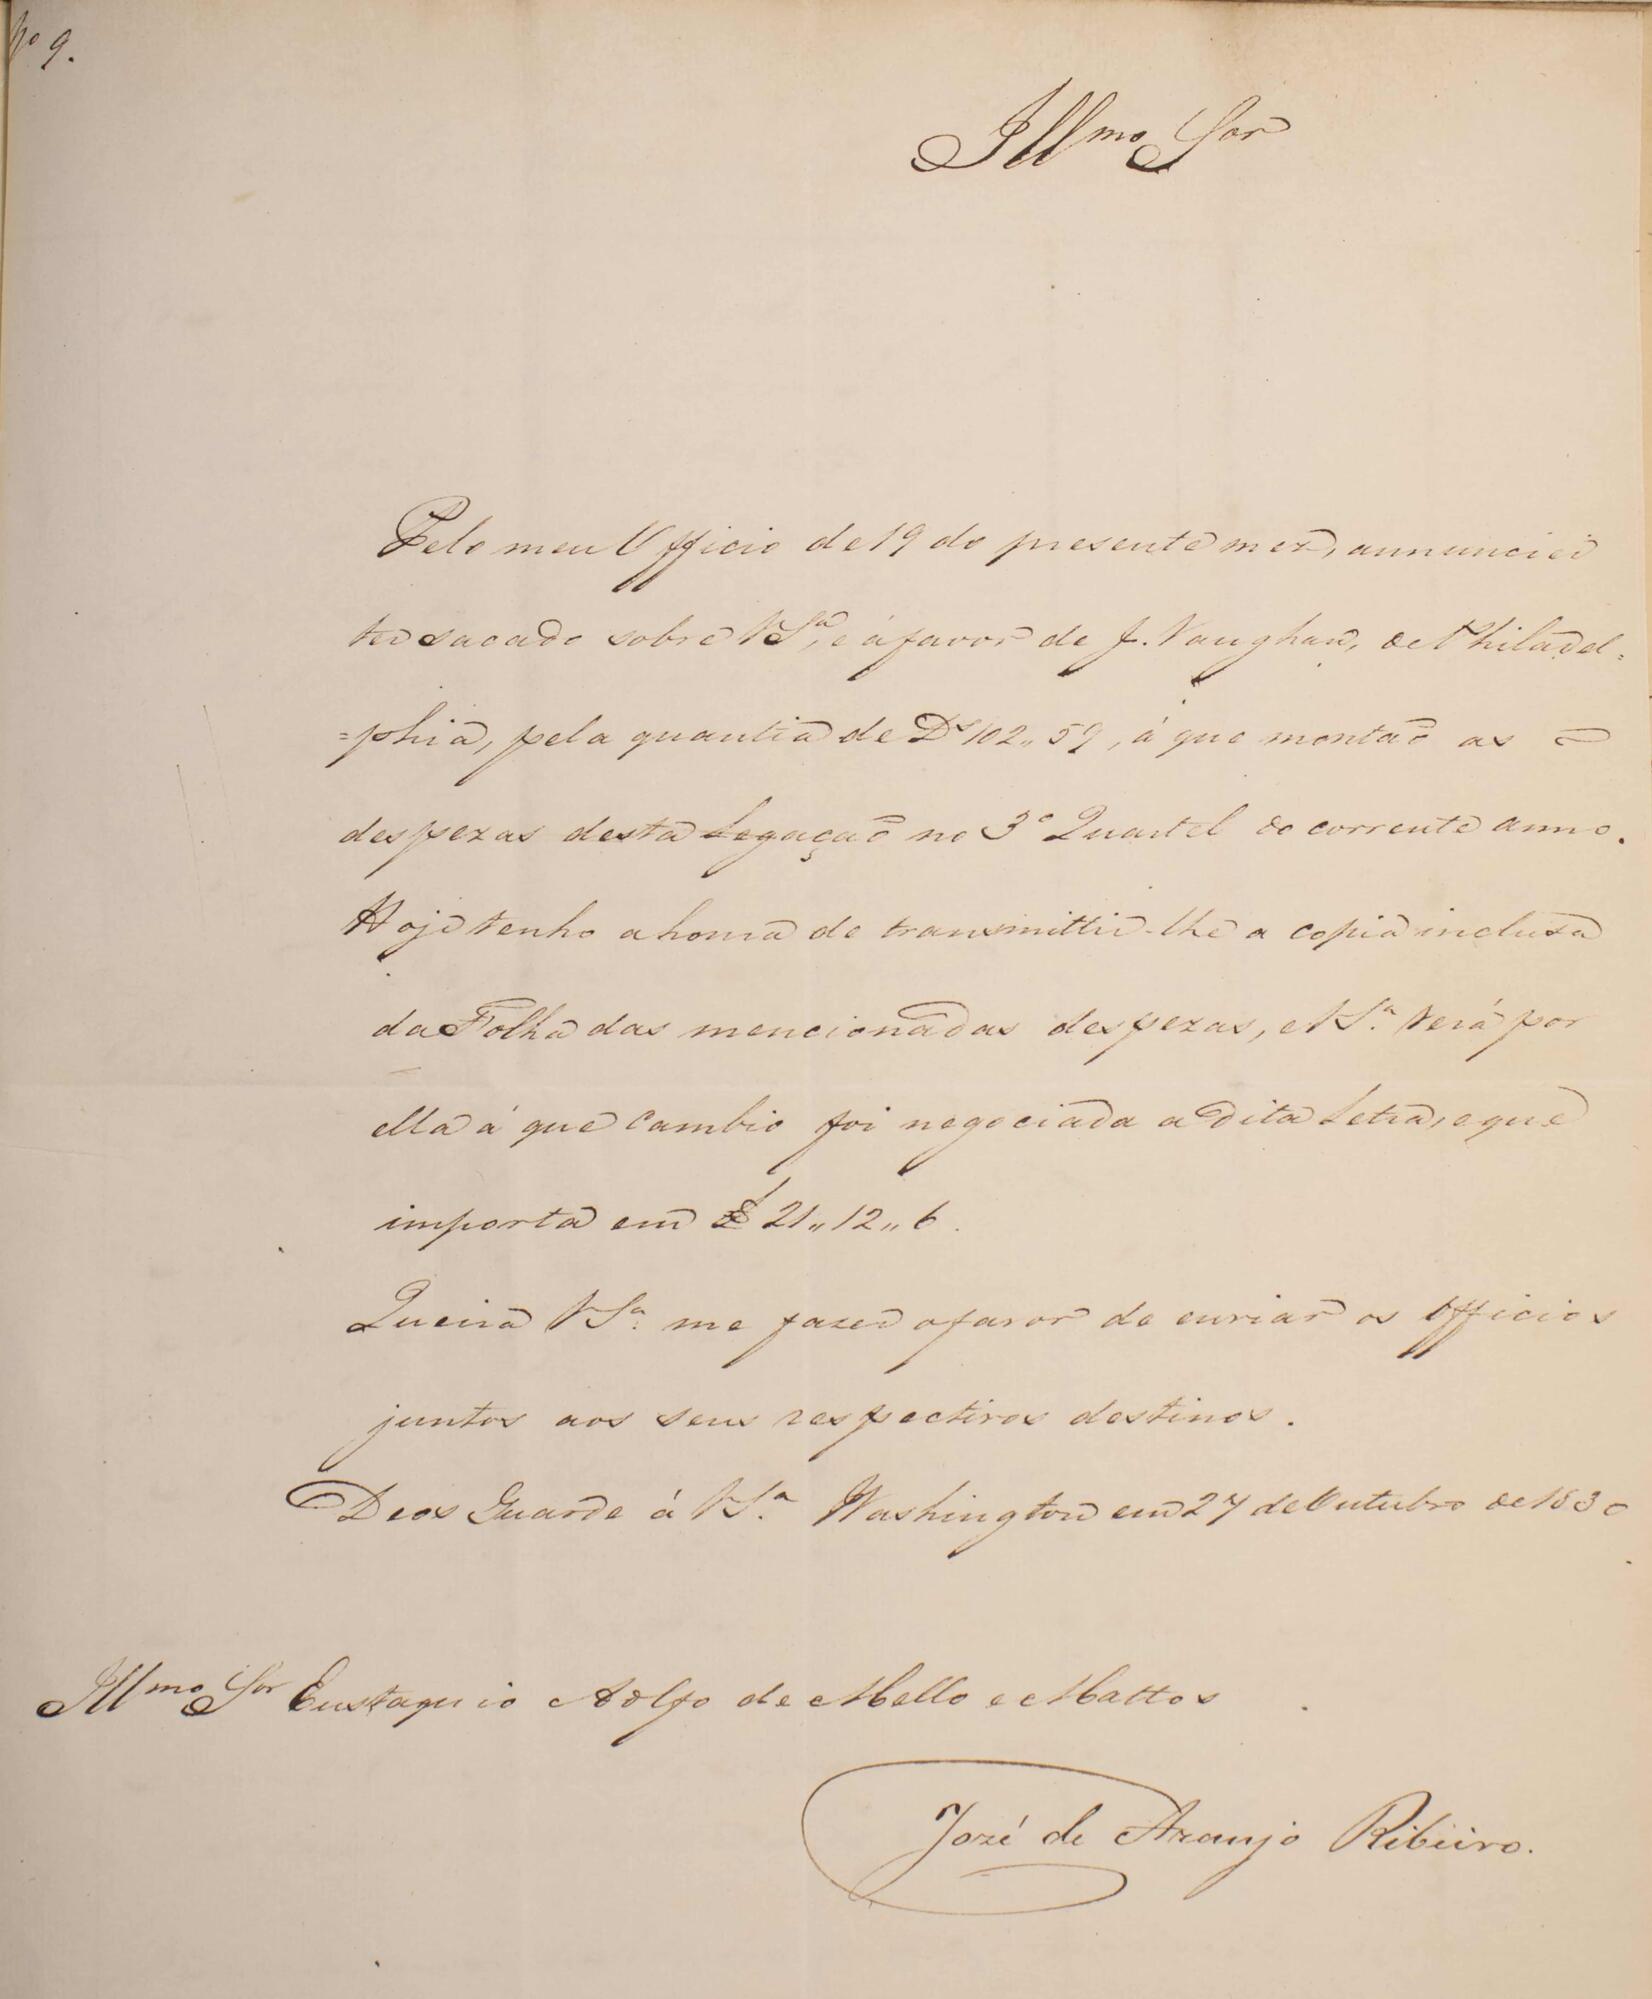 Nº 9.
Illmo Sor
Pelo meu Officio de 19 do presente mez, annunciei
ter sacado sobre VSa, e á favor de J. Vaughan, de Philadel=
=phia, pela quantia de Ds 102,,59, á que montaõ as
despezas desta Legaçaõ no 3º Quartel do corrente anno.
Hoje tenho a honra de transmittir-lhe a copia inclusa
da Folha das mencionadas despezas, e VSa. verá por
ella á que cambio foi negociada a dita Letra, e que
importa em £ 21,,12,,6.
Queira VSa. me fazer o favor de enviar os Officios
juntos aos seus respectivos destinos.
Deos Guarde á VSa. Washington em 27 de Outubro de 1830
Illmo Sor Eustaquio Adolfo de Mello e Mattos
Jozé de Araujo Ribeiro.